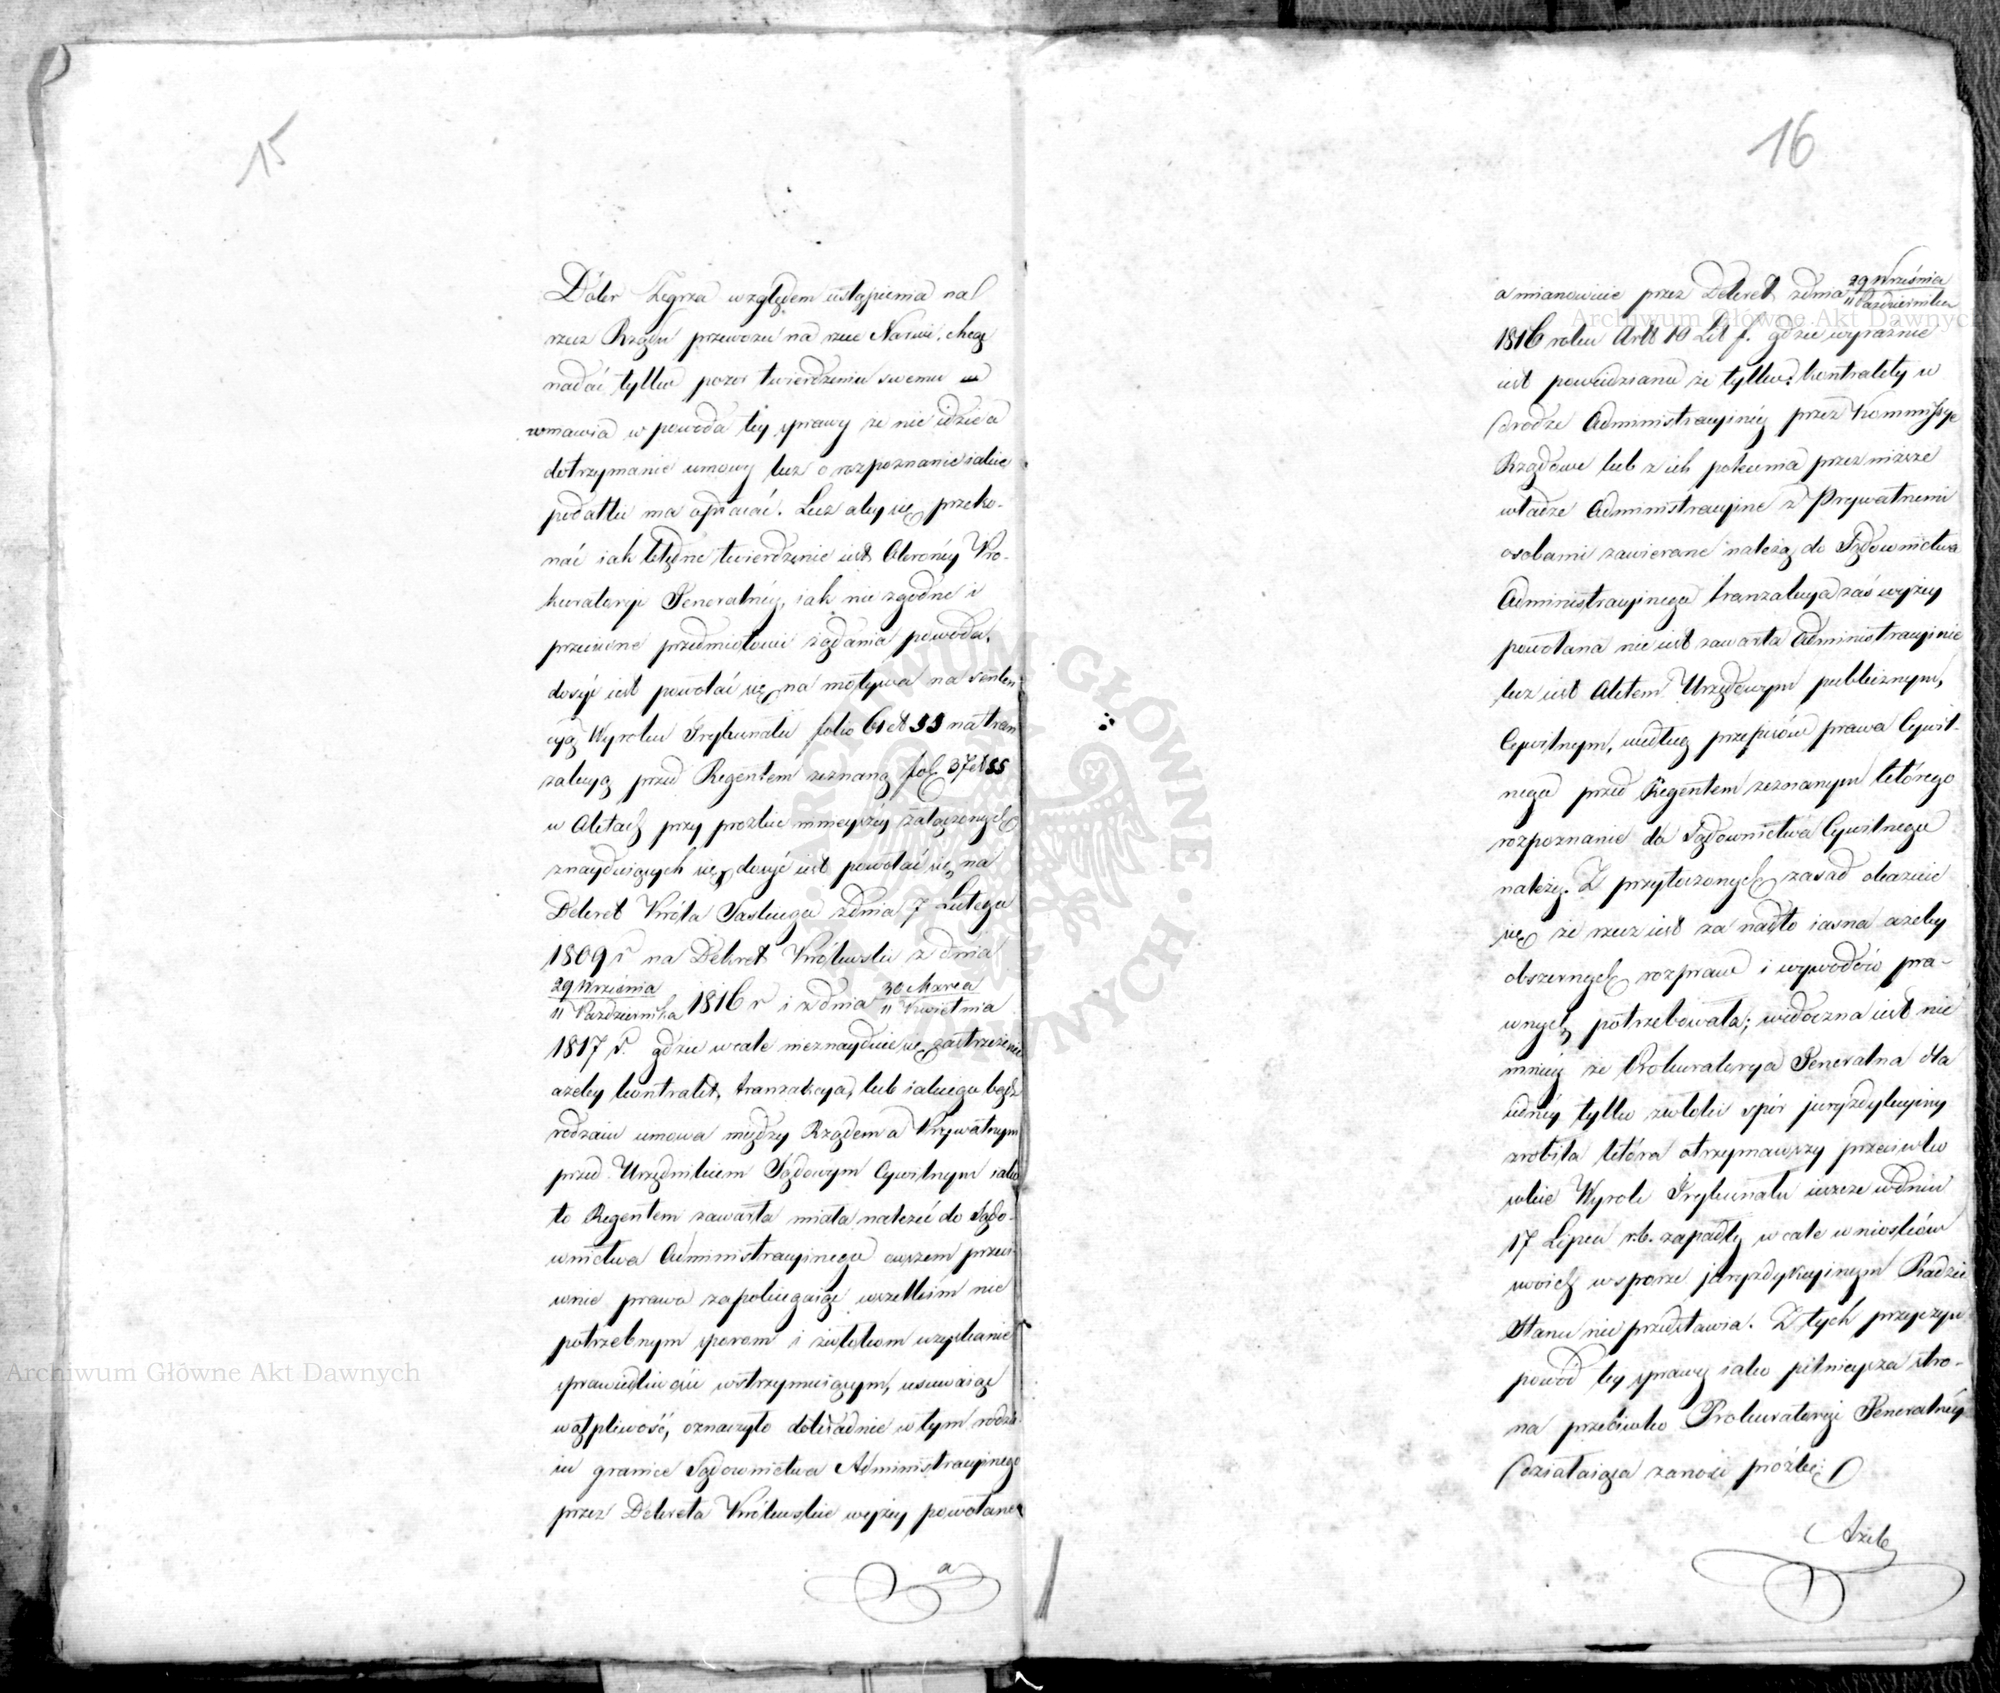 15
Dóbr Zegrza względem ustąpienia na
rzecz Rządu przewozu na rzece Narwi, chcąc
nadać tylko pozór twierdzeniu swemu
wmawia w powoda tey sprawy że nie idzie o
dotrzymanie umowy lecz o rozpoznanie iakie
podatki ma opłacać. Lecz aby się przeko-
nać iak błędne twierdzenie iest Obrońcy Pro-
kuratoryi Generalnéy, iak nie zgodne i
przeciwne przedmiotowi żądania powoda,
dosyć iest powołać się na motywa na senten
cyą Wyroku Trybunału folio 61 et 53 na tran
zakcyą przed Regentem zeznaną fol 37 et 55
w Aktach przy prozbie ninieyszéy załączonych
znayduiących się, dosyć iest powołać się na
Dekret Króla Saskiego z dnia 7 Lutego
1809 r na Dekret Królewski z dnia
29 Września / 11 Października 1816 r i z dnia 30 Marca / 11 Kwietnia
1817 r. gdzie wcale nieznayduie się zastrzeżenie
ażeby kontrakt, tranzakcya, lub iakiego bądź
rodzaiu umowa między Rządem a Prywatnym
przed Urzędnikiem Sądowym Cywilnym iako
to Regentem zawarta miała należeć do Sądo-
wnictwa Administracyinego owszem przeci-
wnie prawo zapobiegaiąc wszelkim nie
potrzebnym sporom i zwłokom uzyskanie
sprawiedliwości wstrzymuiącym, usuwaiąc
wątpliwość, oznaczyło dokładnie w tym rodza
iu granice Sądownictwa Administracyinego
przez Dekreta Królewskie wyżey powołane
a
16
a mianowicie przez Dekret z dnia 29 Września / 11 Października
1816 roku Artt 10 Lit f. gdzie wyraźnie
iest powiedziano że tylko: kontrakty w
drodze Administracyinéy przez Kommissye
Rządowe lub z ich polecenia przez niższe
władze Administracyine z Prywatnemi
osobami zawierane należą do Sądownictwa
Administracyinego tranzakcya zaś wyżey
powołana nie iest zawarta Administracyinie
lecz iest Aktem Urzędowym publicznym,
Cywilnym, według przepisów prawa Cywil-
nego przed Regentem zeznanym którego
rozpoznanie do Sądownictwa Cywilnego
należy. Z przytoczonych zasad okazuie
się że rzecz iest za nadto iasna ażeby
obszernych rozpraw i wywodów pra-
wnych potrzebowała; widoczna iest nie
mniéy że Prokuratorya Generalna dla
iednéy tylko zwłoki spór juryzdykcyiny
zrobiła która otrzymawszy przeciwko
sobie Wyrok Trybunału ieszcze w dniu
17 Lipca r.b. zapadły wcale wniosków
swoich w sporze juryzdykcyinym Radzie
Stanu nie przedstawia. Z tych przyczyn
powód tey sprawy iako pilnieysza stro-
na przeciwko Prokuratoryi Generalnéy
działaiąca zanosi prózbę:
Ażeby
Archiwum Główne Akt Dawnych
Archiwum Główne Akt Dawnych
ARCHIWUM GŁÓWNE AKT DAWNYCH